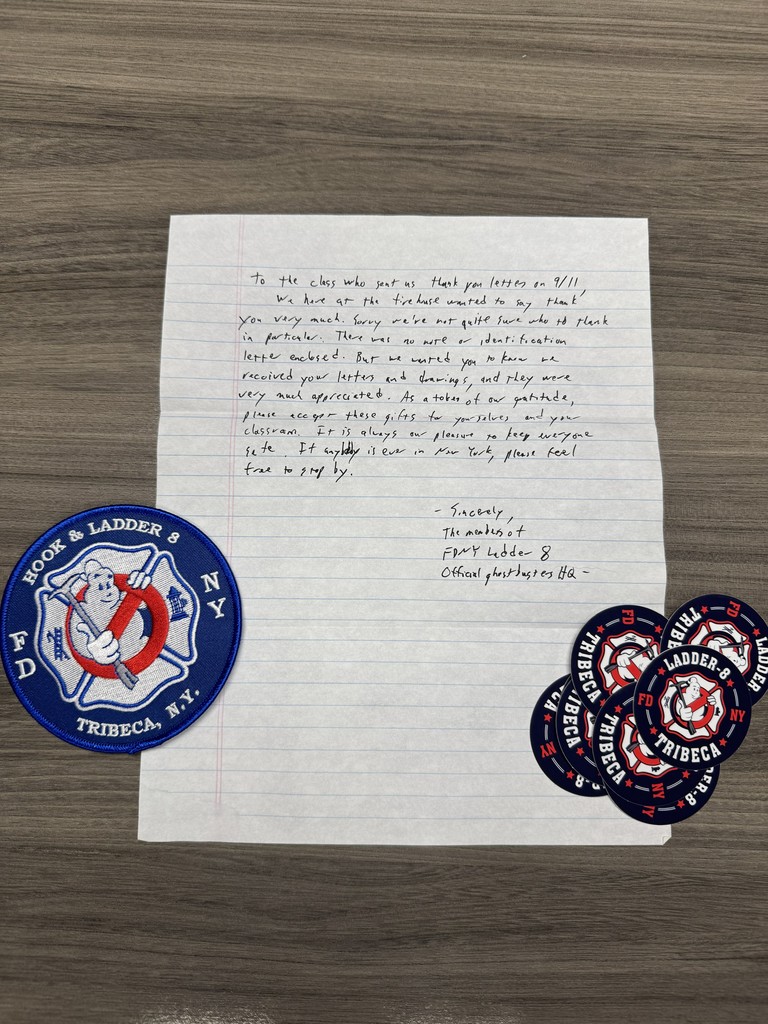 To the class who sent us thank you letters on 9/11,
We here at the firehouse wanted to say thank
you very much. Sorry we're not quite sure who to thank
in particular. There was no note or identification
letter enclosed. But we wanted you to know we
received your letters and drawings, and they were
very much appreciated. As a token of our gratitude,
please accept these gifts for yourselves and your
classroom. It is always our pleasure to keep everyone
safe. If anybody is ever in New York, please feel
free to stop by.
- Sincerely,
The members of
FDNY Ladder 8
Official ghostbusters HQ -
HOOK & LADDER 8
FD
NY
TRIBECA, N.Y.
FD
TRIBECA
FD
LADDER
TRIBECA
LADDER-8
FD
NY
TRIBECA
TRIBECA
NY
TRIBECA
NY
NY